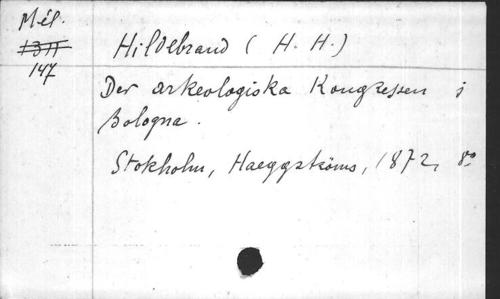 Mél.
13 II
147
Hildebrand (H. H.)
Der arkeologiska Kongressen i
Bologna.
Stokholm, Haeggströms, 1872, 8º